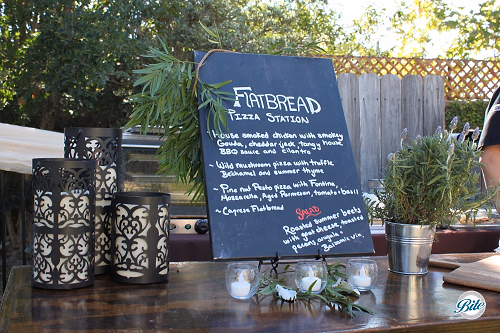 FLATBREAD
PIZZA STATION
~ House smoked chicken with smokey
Gouda, cheddar jack, tangy house
BBQ sauce and cilantro
~ Wild mushroom pizza with truffle
Bekhamel and summer thyme
~ Pine nut Pesto pizza with Fontina,
Mozzarella, Aged Parmesan, tomato + basil
~ Caprese Flatbread
SALAD
Roasted summer beets
with goat cheese, toasted
pecans arugula +
Balsamic vin.
Bite